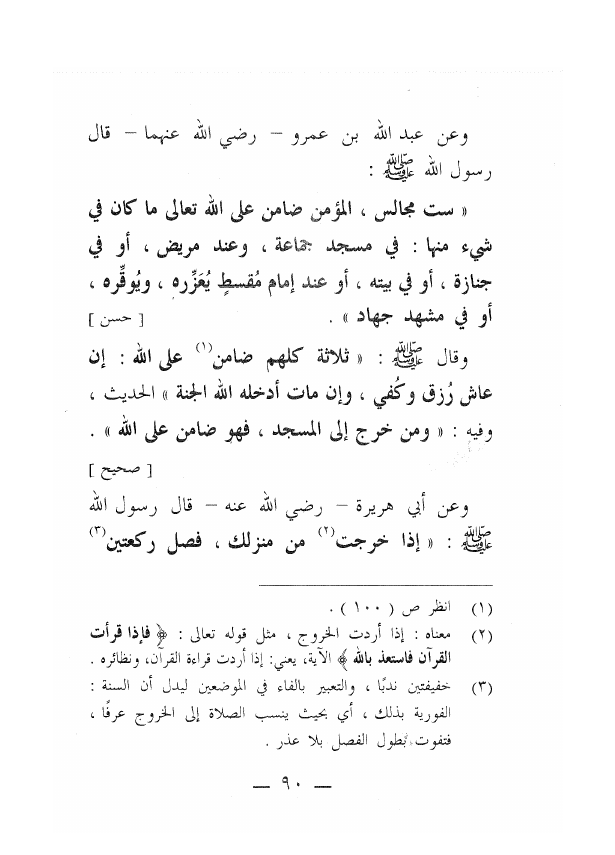 وعن عبد الله بن عمرو – رضي الله عنهما – قال
رسول الله ﷺ :
« ست مجالس ، المؤمن ضامن على الله تعالى ما كان في
شيء منها : في مسجد جماعة ، وعند مريض ، أو في
جنازة ، أو في بيته ، أو عند إمام مُقسطٍ يُعَزِّره ، ويُوقِّره ،
أو في مشهد جهاد » . [ حسن ]
وقال ﷺ : « ثلاثة كلهم ضامن(١) على الله : إن
عاش رُزق وكُفي ، وإن مات أدخله الله الجنة » الحديث ،
وفيه : « ومن خرج إلى المسجد ، فهو ضامن على الله » .
[ صحيح ]
وعن أبي هريرة – رضي الله عنه – قال رسول الله
ﷺ : « إذا خرجت(٢) من منزلك ، فصل ركعتين(٣)
(١) انظر ص ( ١٠٠ ) .
(٢) معناه : إذا أردت الخروج ، مثل قوله تعالى : ﴿ فإذا قرأت
القرآن فاستعذ بالله ﴾ الآية، يعني: إذا أردت قراءة القرآن، ونظائره .
(٣) خفيفتين ندبًا ، والتعبير بالفاء في الموضعين ليدل أن السنة :
الفورية بذلك ، أي بحيث ينسب الصلاة إلى الخروج عرفًا ،
فتفوت بطول الفصل بلا عذر .
— ٩٠ —